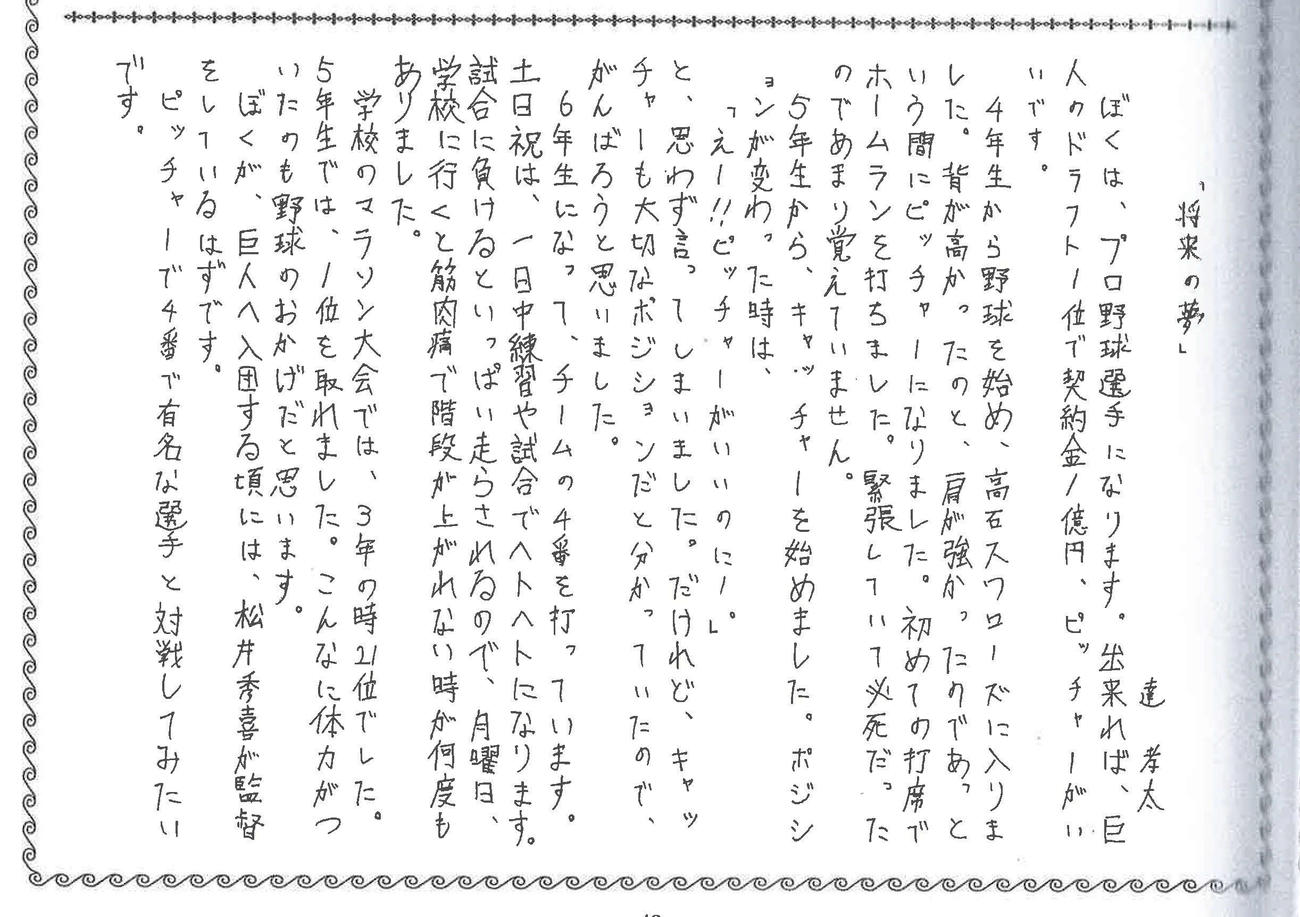 「将来の夢」
達 孝太
ぼくは、プロ野球選手になります。出来れば、巨
人のドラフト1位で契約金1億円、ピッチャーがい
いです。
4年生から野球を始め、高石スワローズに入りま
した。背が高かったのと、肩が強かったのであっと
いう間にピッチャーになりました。初めての打席で
ホームランを打ちました。緊張していて必死だった
のであまり覚えていません。
5年生から、キャッチャーを始めました。ポジシ
ョンが変わった時は、
「えー!!ピッチャーがいいのにー。」
と、思わず言ってしまいました。だけれど、キャッ
チャーも大切なポジションだと分かっていたので、
がんばろうと思いました。
6年生になって、チームの4番を打っています。
土日祝は、一日中練習や試合でヘトヘトになります。
試合に負けるといっぱい走らされるので、月曜日、
学校に行くと筋肉痛で階段が上がれない時が何度も
ありました。
学校のマラソン大会では、3年の時21位でした。
5年生では、1位を取れました。こんなに体力がつ
いたのも野球のおかげだと思います。
ぼくが、巨人へ入団する頃には、松井秀喜が監督
をしているはずです。
ピッチャーで4番で有名な選手と対戦してみたい
です。